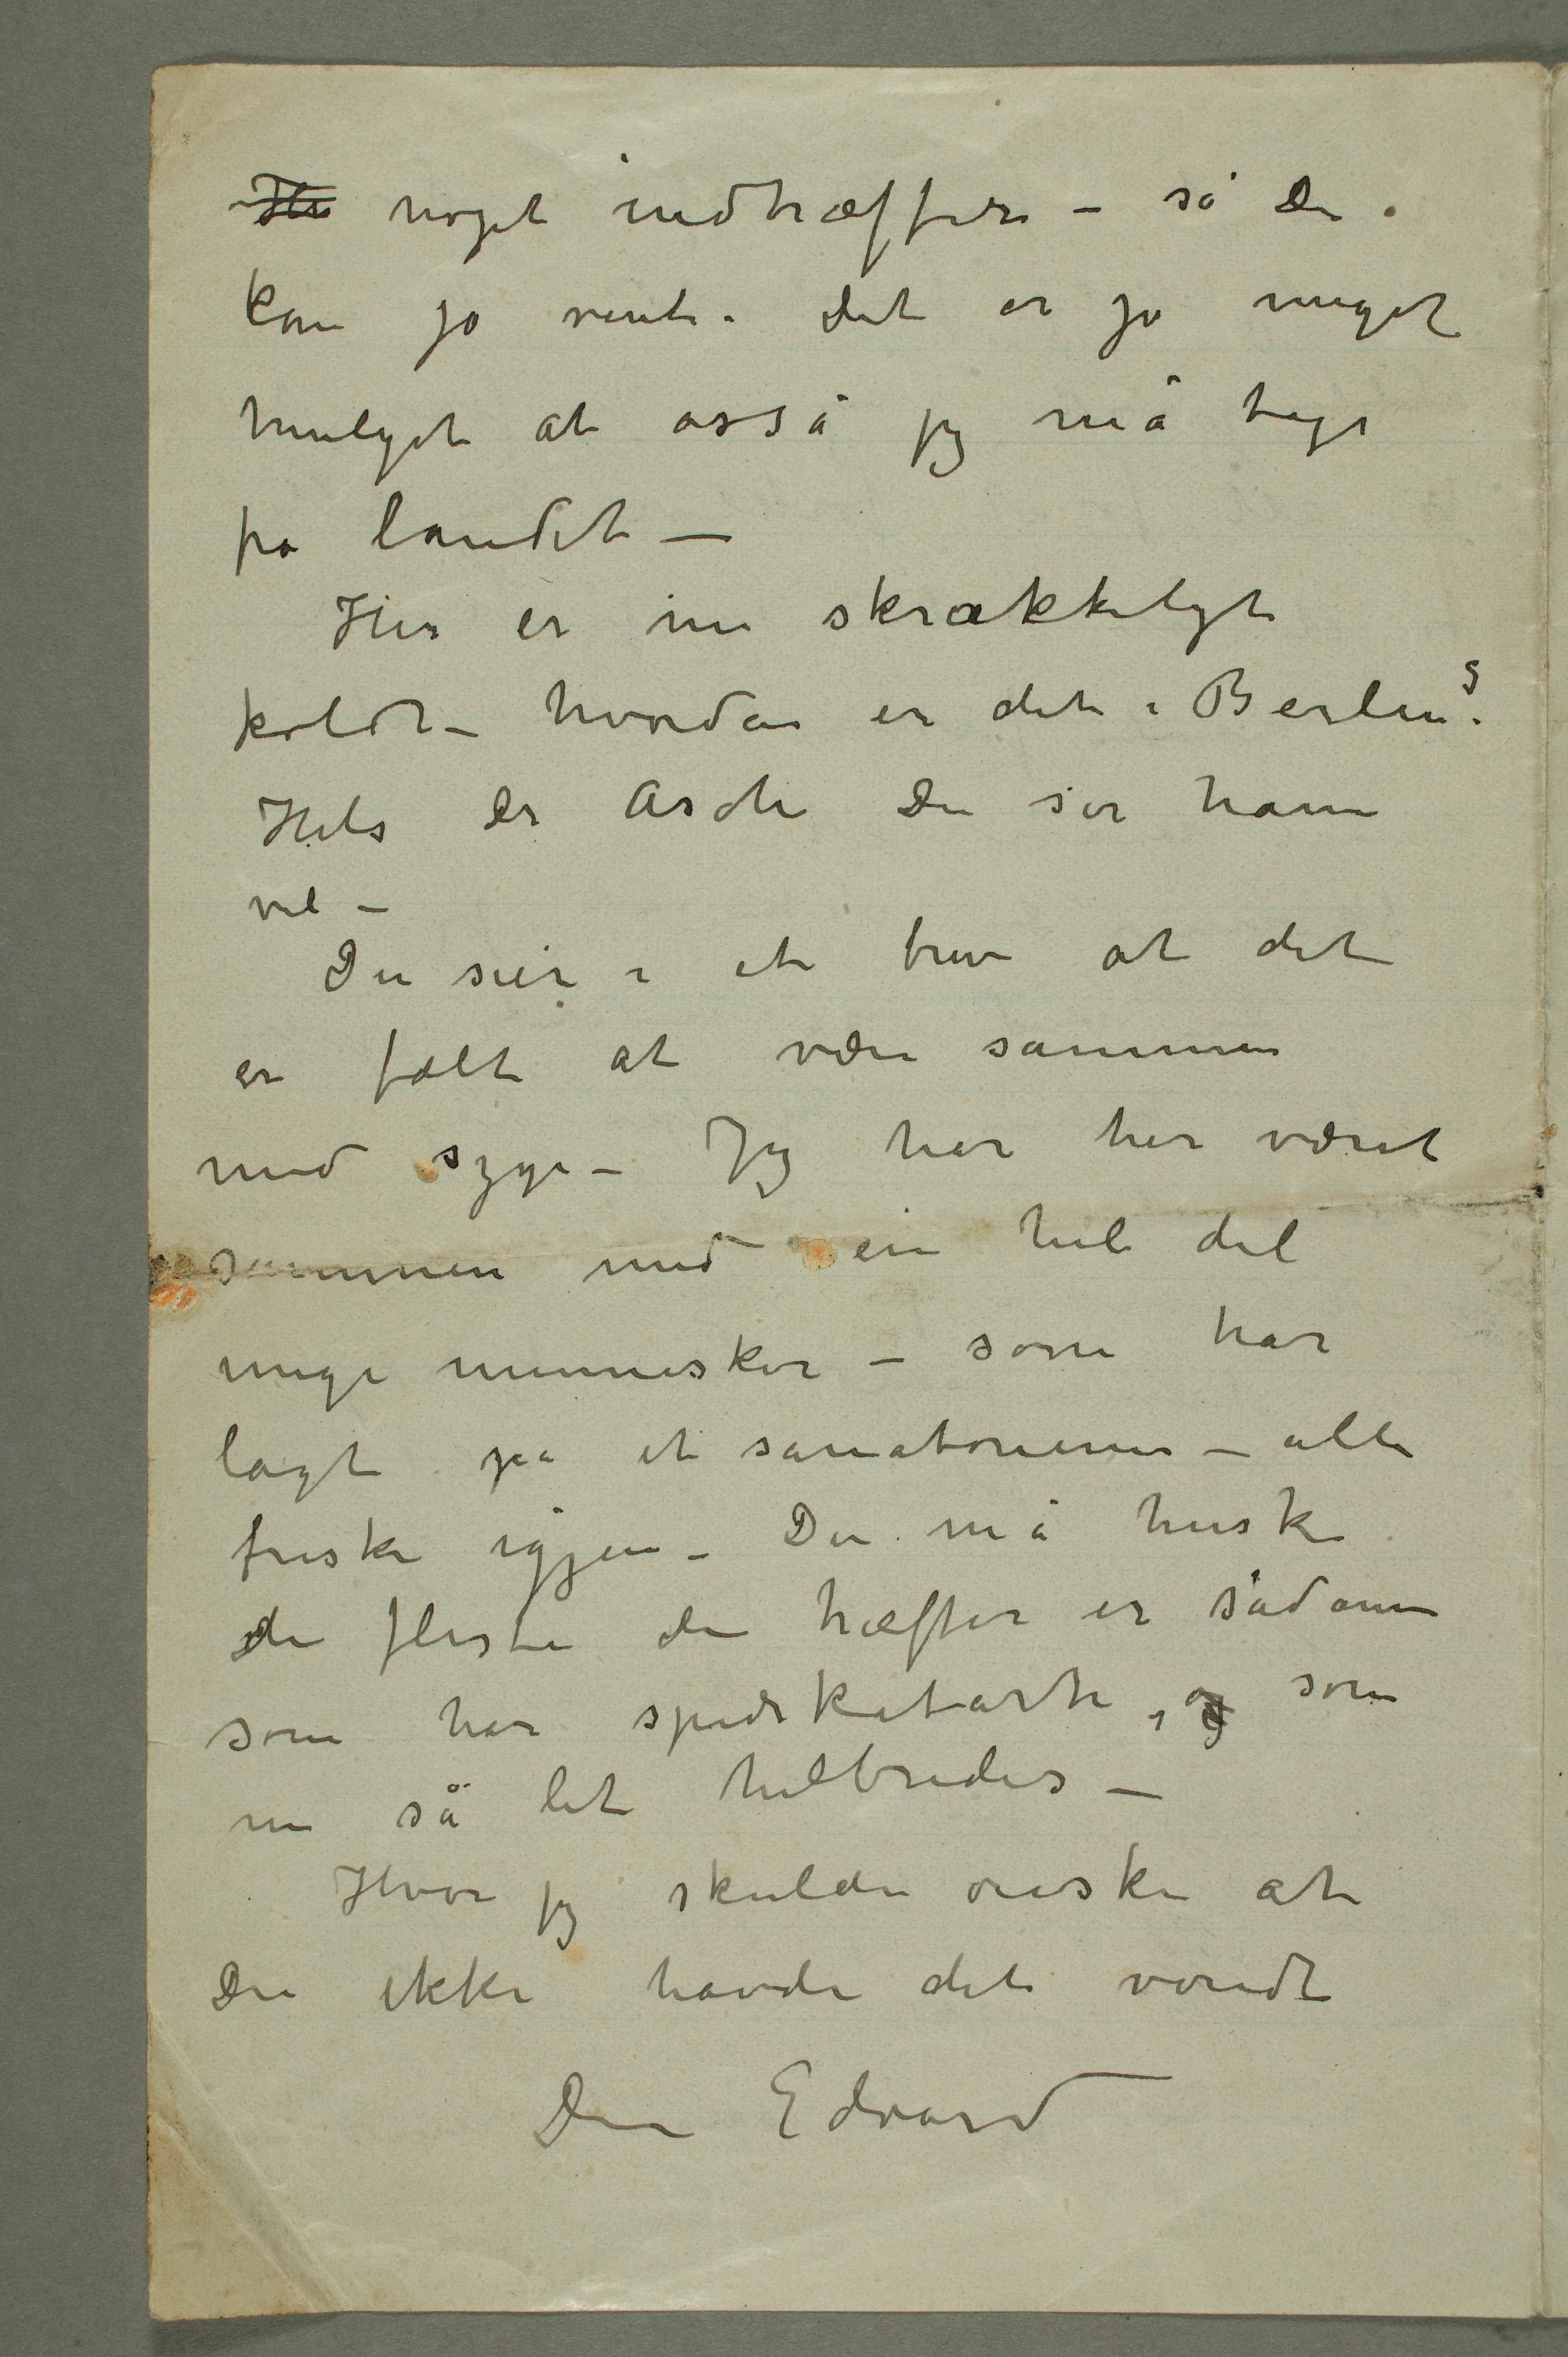 noget indtræffer – så Du
kan jo vente. Det er jo meget
muligt at osså jeg må tage
på landet –
Her er nu skrækkeligt
koldt – hvordan er det i Berlin?
Hils Dr Asch Du ser ham
vel –
Du sier i et brev at det
er fælt at være sammen
med syge – Jeg har her været
sammen med en hel del
unge mennesker – som har
lagt på et sanatorium – alle
friske igjen – Du må huske
de fleste du træffer er sådanne
som har spidskatarh, og som
nu så let helbredes –
Hvor jeg skulde ønske at
Du ikke havde det vondt
Din Edvard